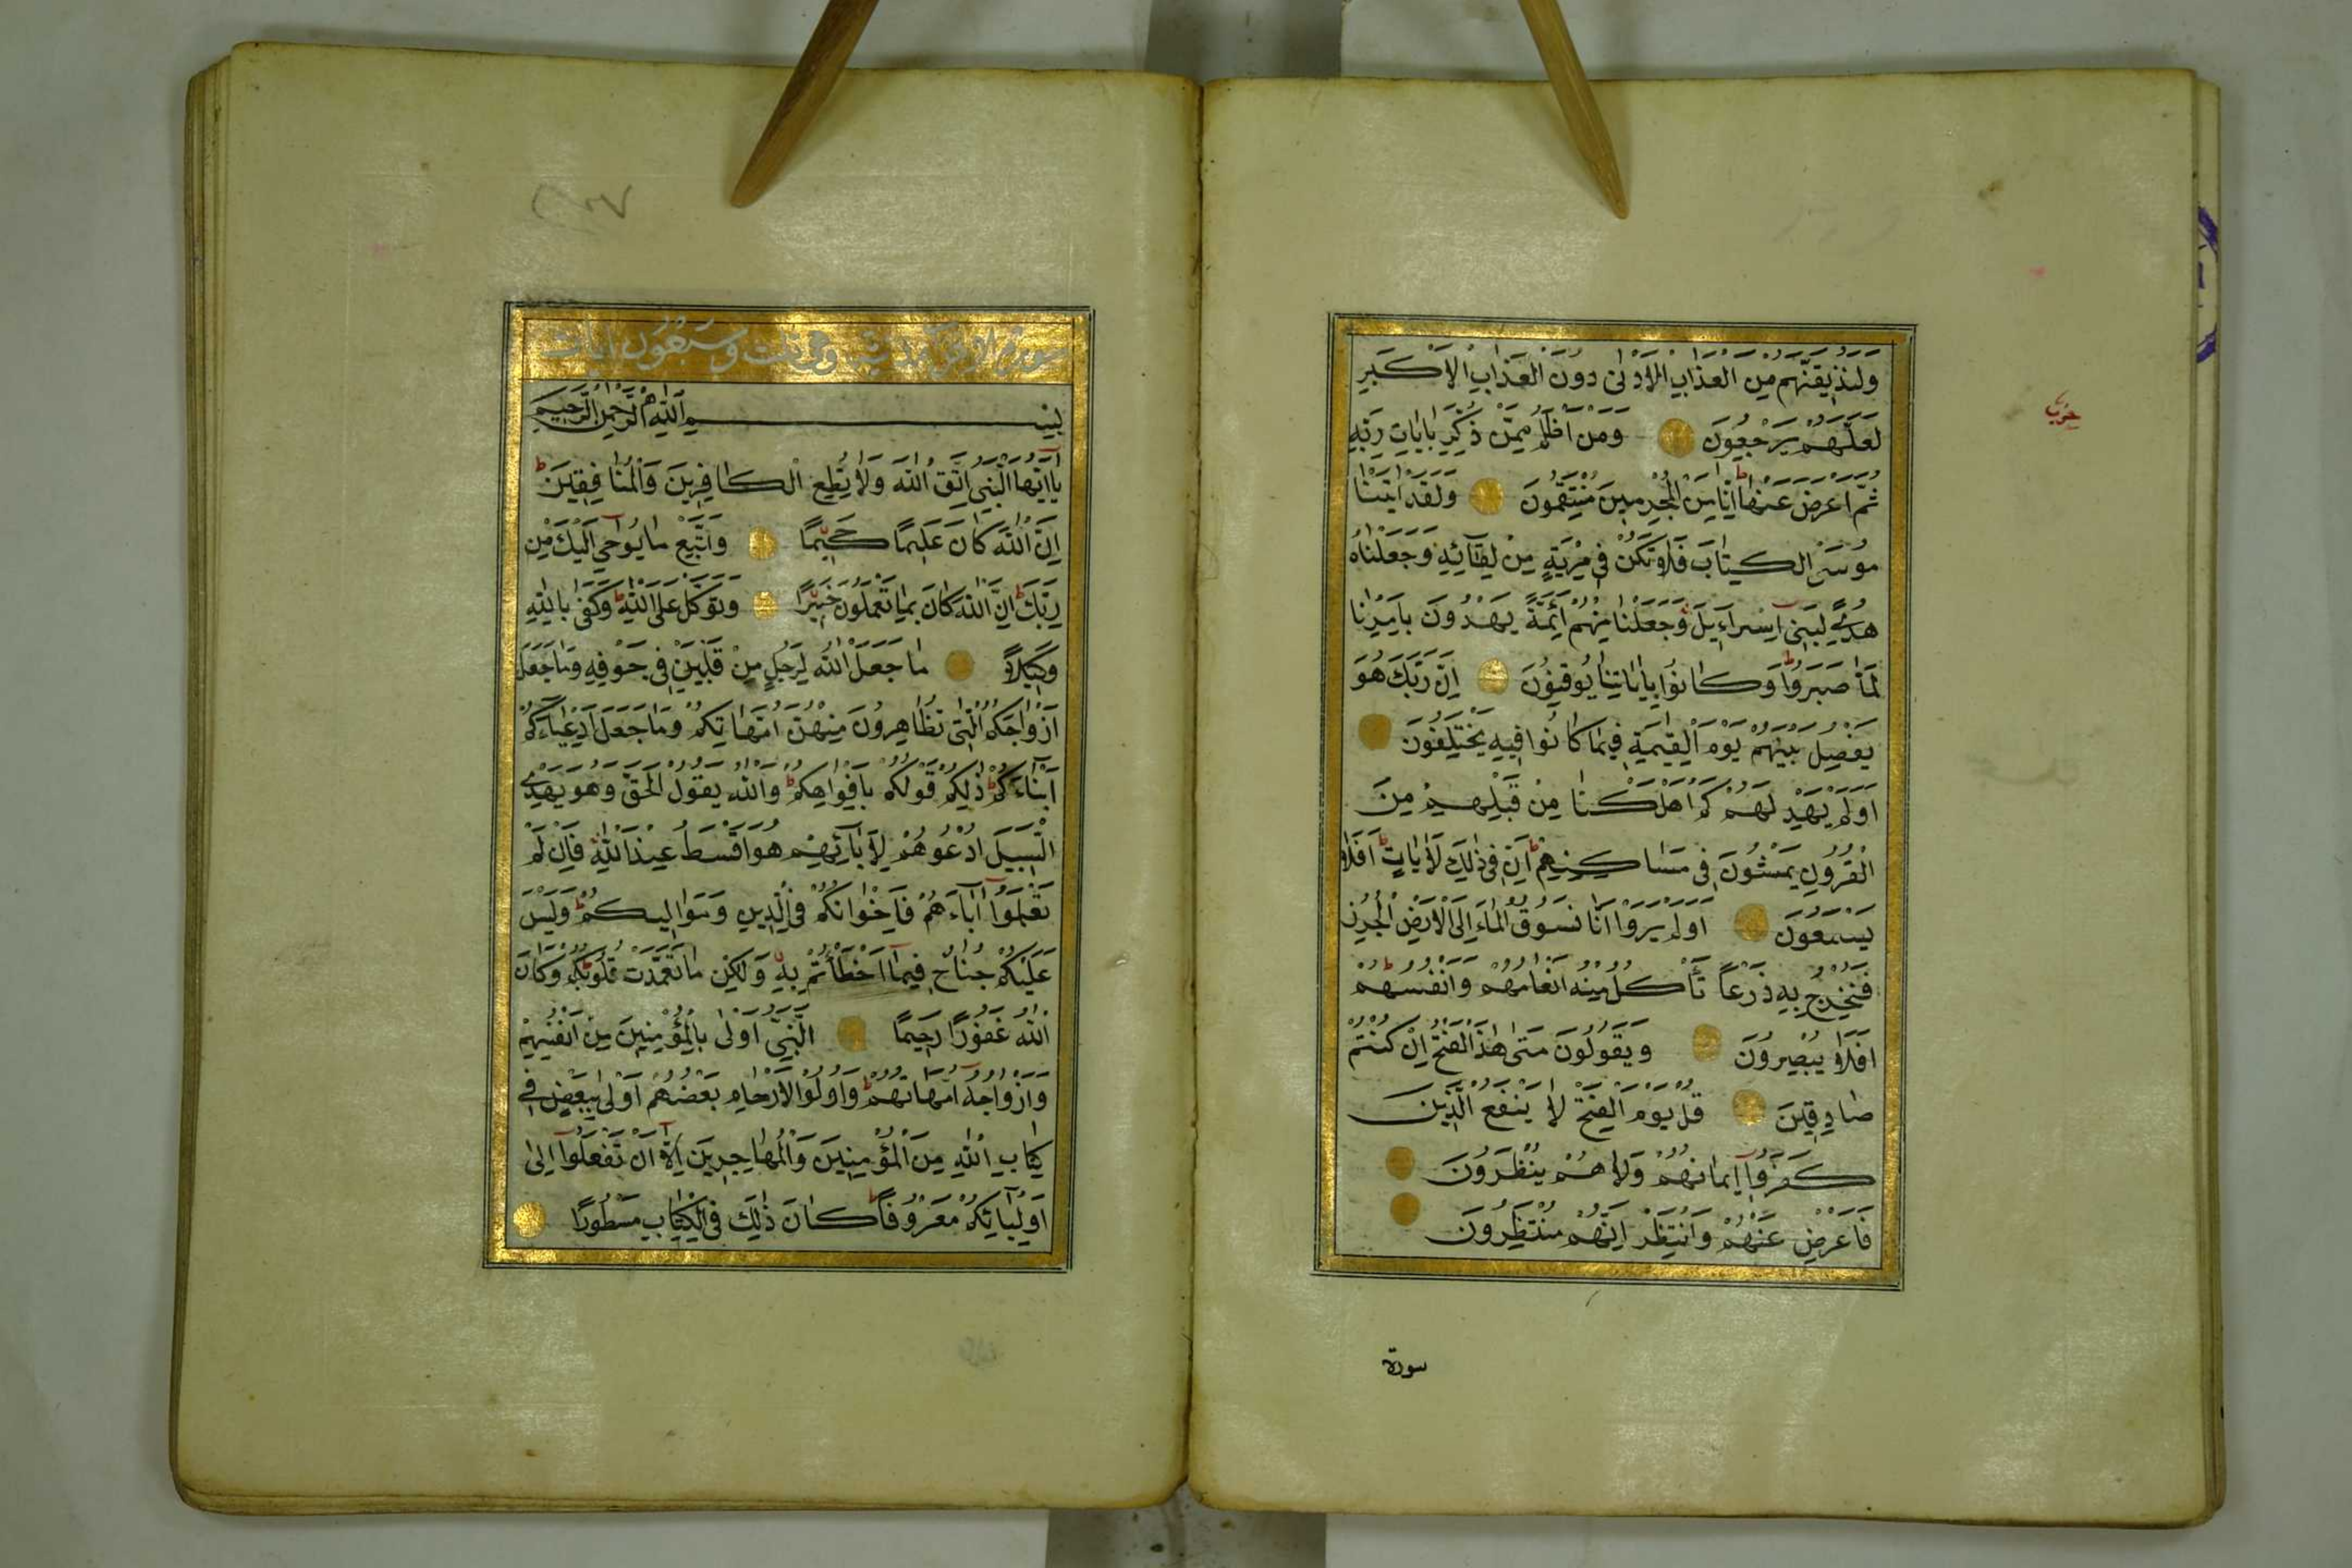 وَلَنُذِيقَنَّهُمْ مِنَ الْعَذَابِ الْاَدْنٰى دُونَ الْعَذَابِ الْاَكْبَرِ
لَعَلَّهُمْ يَرْجِعُونَ وَمَنْ اَظْلَمُ مِمَّنْ ذُكِّرَ بِاٰيَاتِ رَبِّهِ
ثُمَّ اَعْرَضَ عَنْهَا اِنَّا مِنَ الْمُجْرِمِينَ مُنْتَقِمُونَ وَلَقَدْ اٰتَيْنَا
مُوسَى الْكِتَابَ فَلَا تَكُنْ فِى مِرْيَةٍ مِنْ لِقَٓائِهِ وَجَعَلْنَاهُ
هُدًى لِبَنِٓى اِسْرَٓاءِيلَ وَجَعَلْنَا مِنْهُمْ اَئِمَّةً يَهْدُونَ بِاَمْرِنَا
لَمَّا صَبَرُوا وَكَانُوا بِاٰيَاتِنَا يُوقِنُونَ اِنَّ رَبَّكَ هُوَ
يَفْصِلُ بَيْنَهُمْ يَوْمَ الْقِيٰمَةِ فِيمَا كَانُوا فِيهِ يَخْتَلِفُونَ
اَوَلَمْ يَهْدِ لَهُمْ كَمْ اَهْلَكْنَا مِنْ قَبْلِهِمْ مِنَ
الْقُرُونِ يَمْشُونَ فِى مَسَاكِنِهِمْ اِنَّ فِى ذٰلِكَ لَاٰيَاتٍ اَفَلَا
يَسْمَعُونَ اَوَلَمْ يَرَوْا اَنَّا نَسُوقُ الْمَٓاءَ اِلَى الْاَرْضِ الْجُرُزِ
فَنُخْرِجُ بِهِ زَرْعًا تَأْكُلُ مِنْهُ اَنْعَامُهُمْ وَاَنْفُسُهُمْ
اَفَلَا يُبْصِرُونَ وَيَقُولُونَ مَتٰى هٰذَا الْفَتْحُ اِنْ كُنْتُمْ
صَادِقِينَ قُلْ يَوْمَ الْفَتْحِ لَا يَنْفَعُ الَّذِينَ
كَفَرُٓوا اِيمَانُهُمْ وَلَا هُمْ يُنْظَرُونَ
فَاَعْرِضْ عَنْهُمْ وَانْتَظِرْ اِنَّهُمْ مُنْتَظِرُونَ
سورة
حزب
سُورَة الاحزاب مدنية وهى ثلث وَسَبْعُونَ ايات
بِسْمِ اللّٰهِ الرَّحْمٰنِ الرَّحِيمِ
يَٓا اَيُّهَا النَّبِىُّ اتَّقِ اللّٰهَ وَلَا تُطِعِ الْكَافِرِينَ وَالْمُنَافِقِينَ
اِنَّ اللّٰهَ كَانَ عَلِيمًا حَكِيمًا وَاتَّبِعْ مَا يُوحٰٓى اِلَيْكَ مِنْ
رَبِّكَ اِنَّ اللّٰهَ كَانَ بِمَا تَعْمَلُونَ خَبِيرًا وَتَوَكَّلْ عَلَى اللّٰهِ وَكَفٰى بِاللّٰهِ
وَكِيلًا مَا جَعَلَ اللّٰهُ لِرَجُلٍ مِنْ قَلْبَيْنِ فِى جَوْفِهِ وَمَا جَعَلَ
اَزْوَاجَكُمُ الّٰٓتِى تُظَاهِرُونَ مِنْهُنَّ اُمَّهَاتِكُمْ وَمَا جَعَلَ اَدْعِيَٓاءَكُمْ
اَبْنَٓاءَكُمْ ذٰلِكُمْ قَوْلُكُمْ بِاَفْوَاهِكُمْ وَاللّٰهُ يَقُولُ الْحَقَّ وَهُوَ يَهْدِى
السَّبِيلَ اُدْعُوهُمْ لِاٰبَٓائِهِمْ هُوَ اَقْسَطُ عِنْدَ اللّٰهِ فَاِنْ لَمْ
تَعْلَمُٓوا اٰبَٓاءَهُمْ فَاِخْوَانُكُمْ فِى الدِّينِ وَمَوَالِيكُمْ وَلَيْسَ
عَلَيْكُمْ جُنَاحٌ فِيمَٓا اَخْطَأْتُمْ بِهِ وَلٰكِنْ مَا تَعَمَّدَتْ قُلُوبُكُمْ وَكَانَ
اللّٰهُ غَفُورًا رَحِيمًا اَلنَّبِىُّ اَوْلٰى بِالْمُؤْمِنِينَ مِنْ اَنْفُسِهِمْ
وَاَزْوَاجُهُٓ اُمَّهَاتُهُمْ وَاُولُوا الْاَرْحَامِ بَعْضُهُمْ اَوْلٰى بِبَعْضٍ فِى
كِتَابِ اللّٰهِ مِنَ الْمُؤْمِنِينَ وَالْمُهَاجِرِينَ اِلَّٓا اَنْ تَفْعَلُٓوا اِلٰٓى
اَوْلِيَٓائِكُمْ مَعْرُوفًا كَانَ ذٰلِكَ فِى الْكِتَابِ مَسْطُورًا